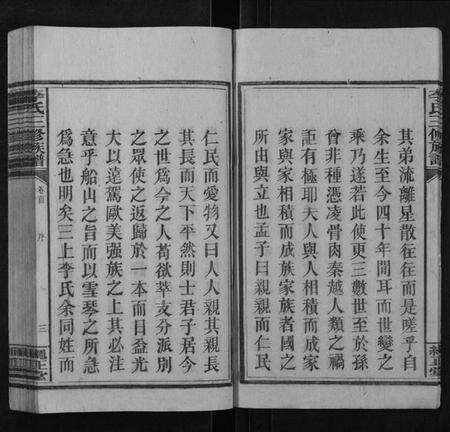 其弟流離星散往往而是嗟乎自
余生至今四十年間耳而世變之
乘乃遂若此使更三數世至於孫
曾非種憑凌骨肉秦越人類之禍
詎有極耶夫人與人相積而成家
家與家相積而成族家族者國之
所由與立也孟子曰親親而仁民
仁民而愛物又曰人人親其親長
其長而天下平然則士君子居今
之世爲今之人苟欲萃支分派別
之眾使之返歸於一本而日益光
大以遠駕歐美強族之上其必注
意乎船山之旨而以雪琴之所急
爲急也明矣三上李氏余同姓而
李氏三修族譜
卷首
序
三